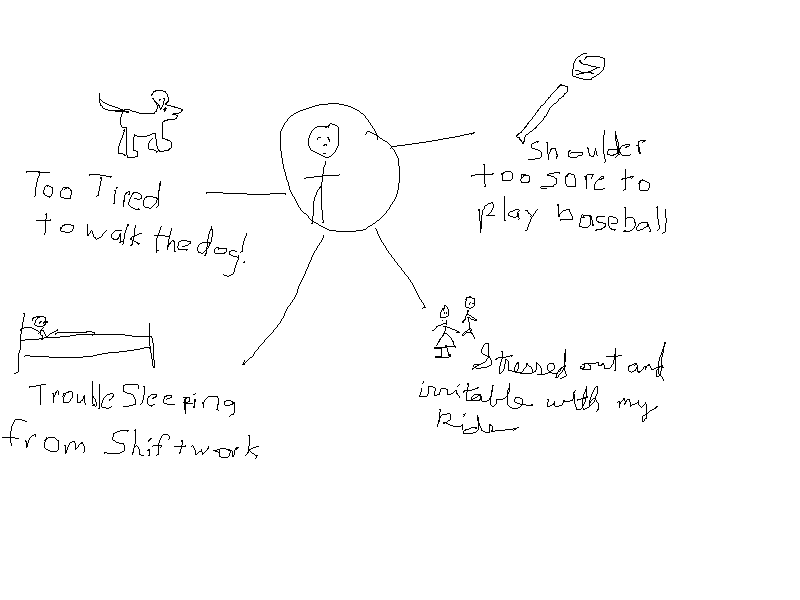 Too Tired
to walk the dog!
Shoulder
too sore to
play baseball
Trouble Sleeping
from Shiftwork
Stressed out and
irritable with my
kids